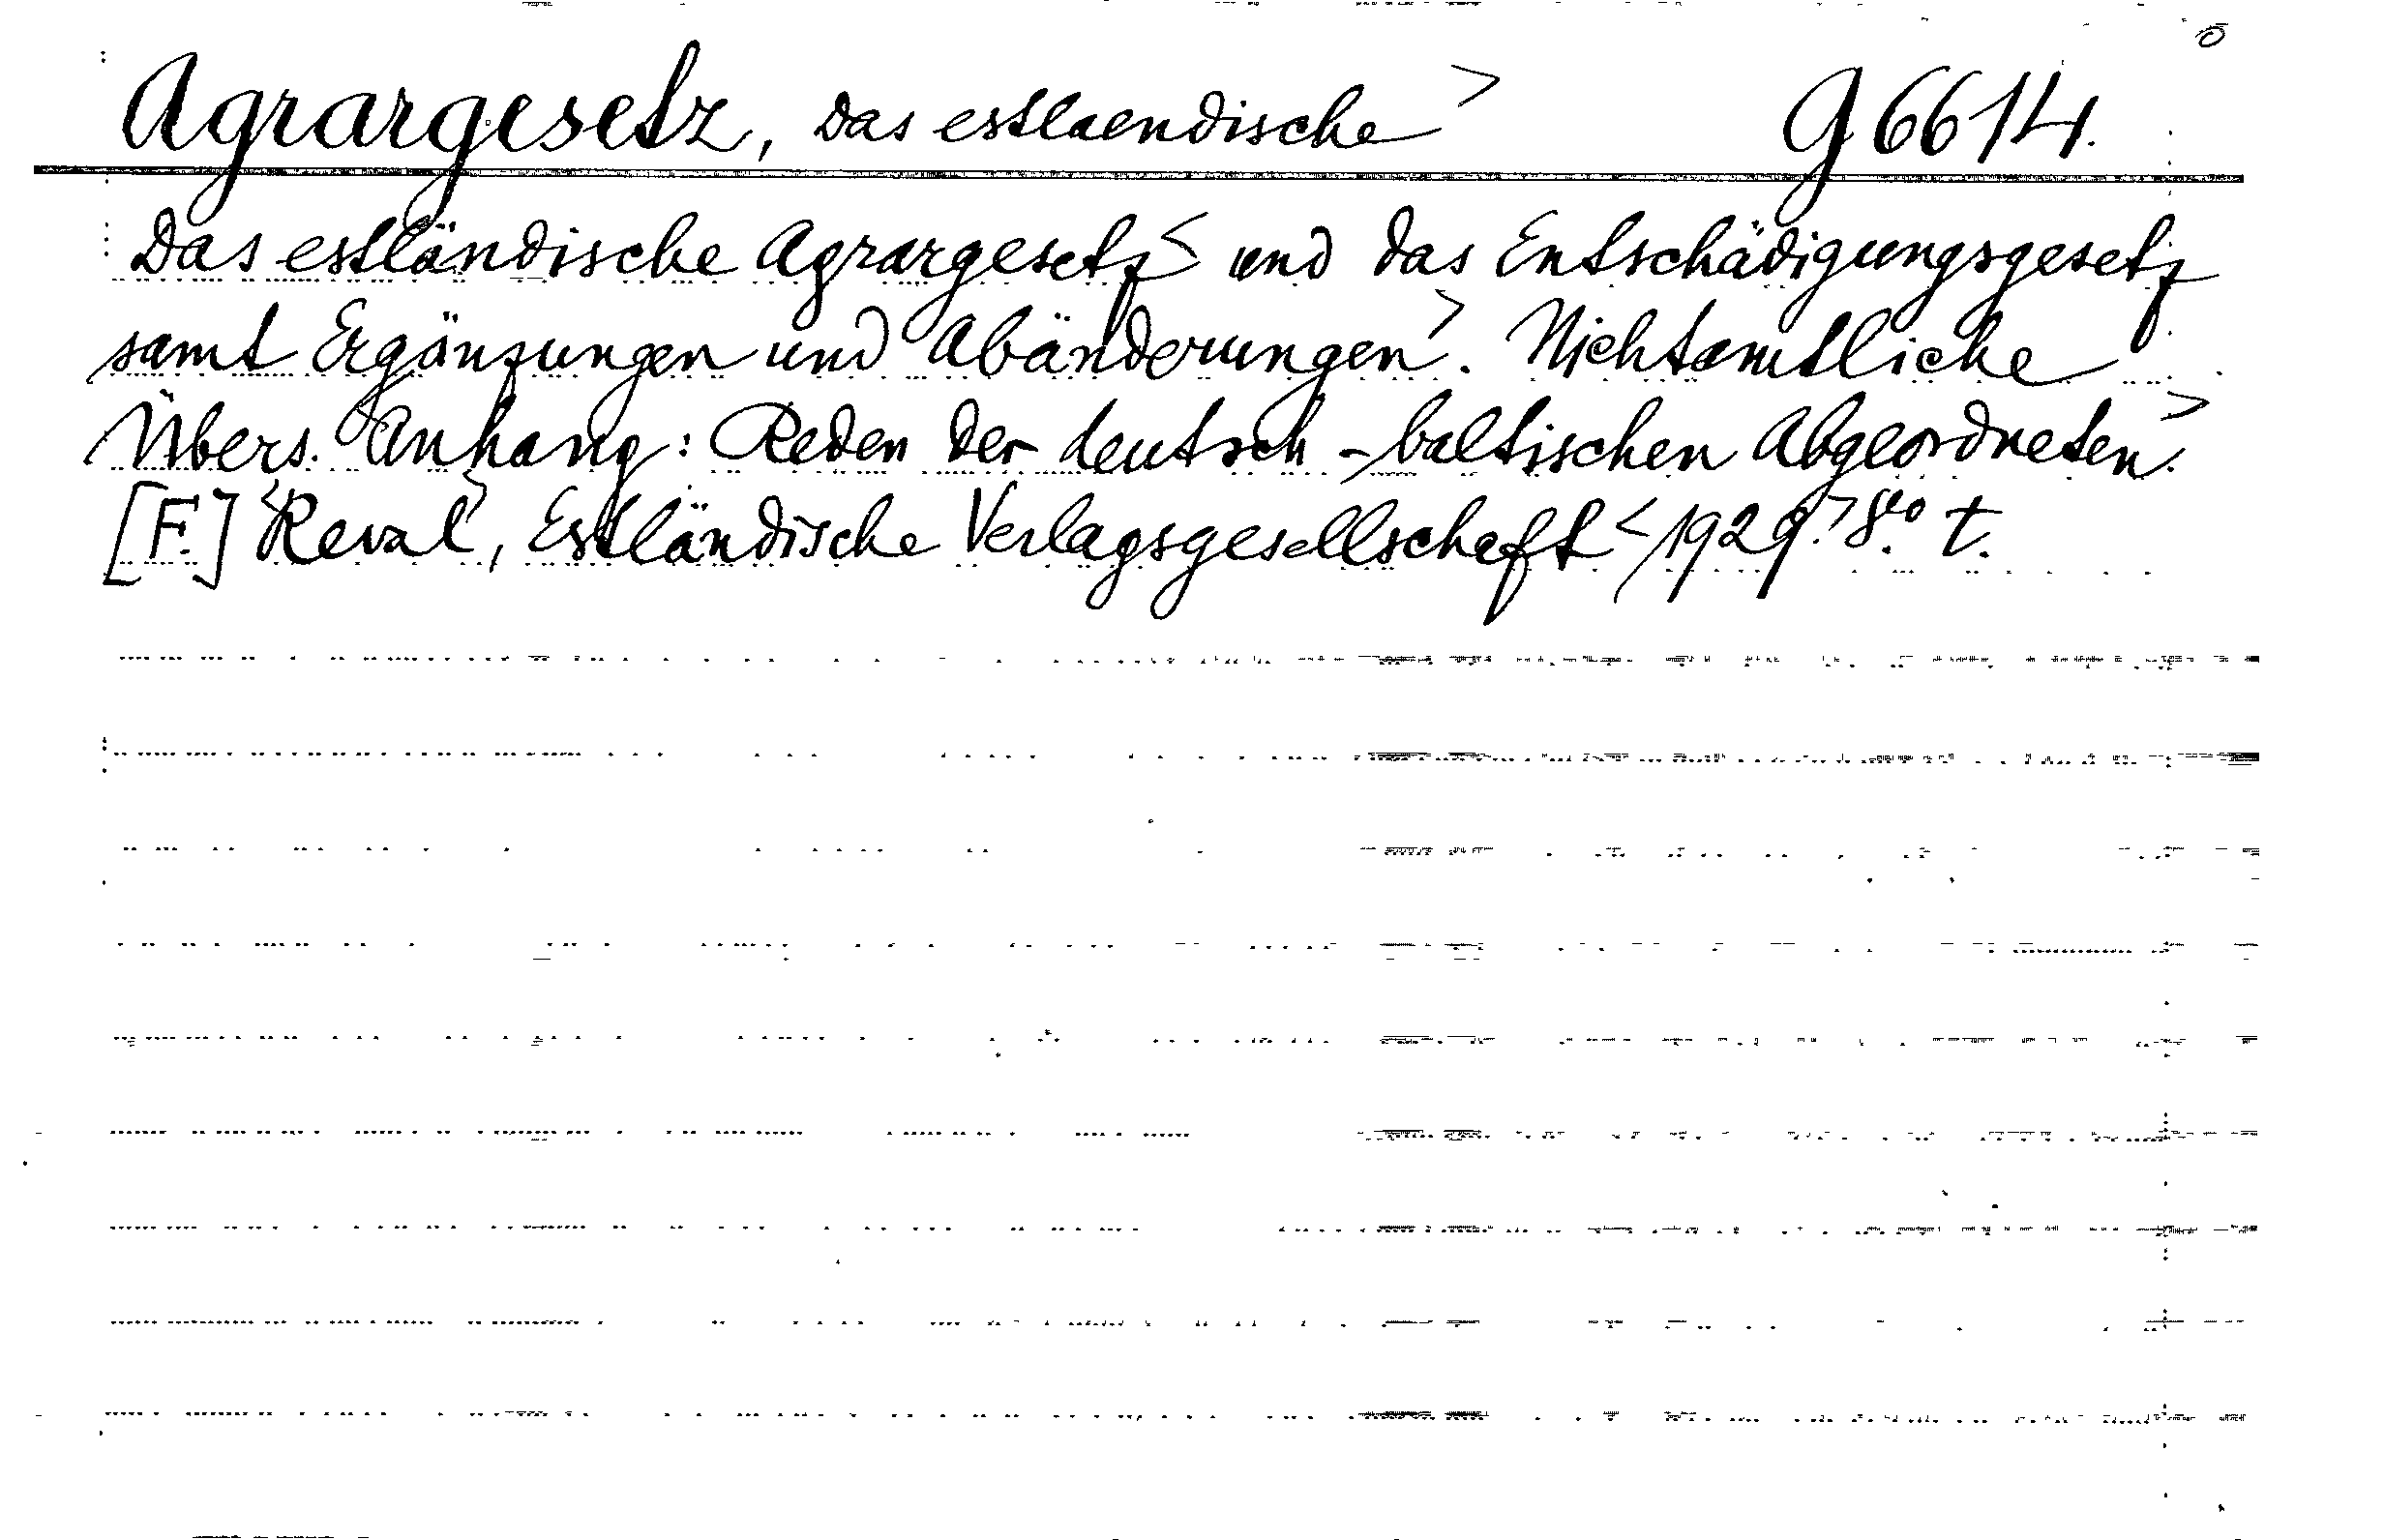 Agrargesetz, das estlaendische> G 6614.
Das estländische Agrargesetz< und das Entschädigungsgesetz
samt Ergänzungen und Abänderungen>. Nichtamtliche
Übers. Anhang: Reden der deutsch-baltischen Abgeordneten>.
[F.] <Reval>, Estländische Verlagsgesellschaft <1929.> 8º t.